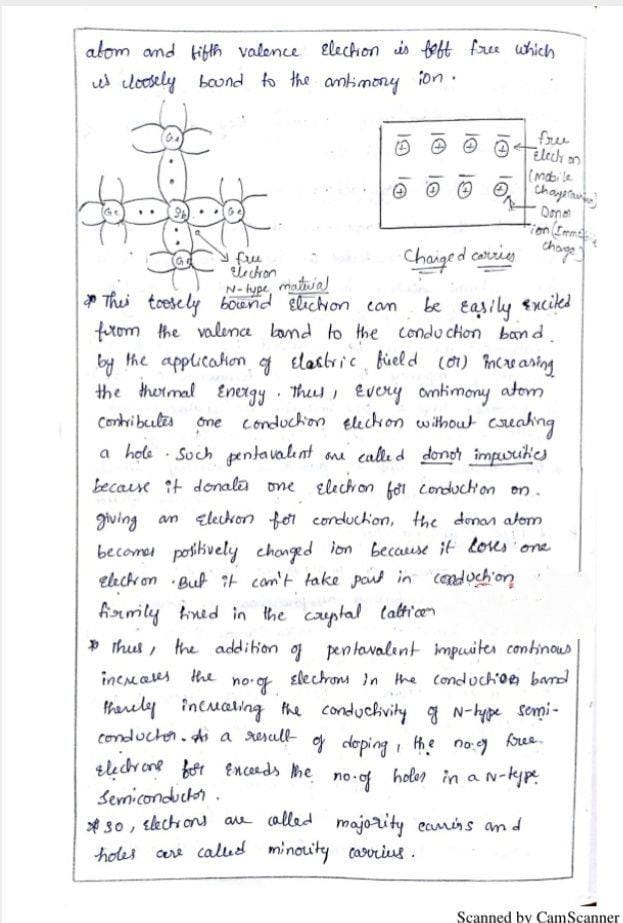 atom and fifth valence electron is left free which
is loosely bound to the antimony ion.
Ge
Ge
Sb
Ge
Ge
free
electron
N-type material
free
electron
(mobile
charge
Donor
ion (Immobile
charge)
Charged carries
* This loosely bound electron can be easily excited
from the valence band to the conduction band
by the application of electric field (or) increasing
the thermal Energy. Thus, Every antimony atom
contributes one conduction electron without creating
a hole. Such pentavalent are called donor impurities
because it donates one electron for conduction on.
giving an electron for conduction, the donar atom
becomes positively charged ion because it loses one
electron. But it can't take part in conduction
firmily fixed in the crystal
* Thus, the addition of pentavalent impurites continous
increases the no.of electrons in the conduction band
thereby increasing the conductivity of N-type semi-
conductor. As a result of doping, the no.of free
electrons for exceeds the no.of holes in a N-type
Semiconductor.
* so, electrons are called majority carriers and
holes are called minority carriers.
Scanned by CamScanner